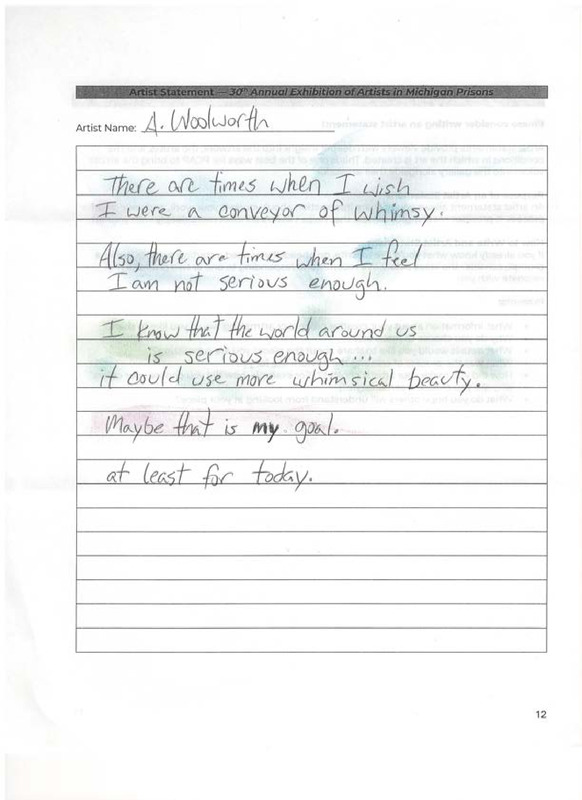 Artist Statement — 30th Annual Exhibition of Artists in Michigan Prisons
Artist Name: A. Woolworth
There are times when I wish
I were a conveyor of whimsy.
Also, there are times when I feel
I am not serious enough.
I know that the world around us
is serious enough...
it could use more whimsical beauty.
Maybe that is my goal.
at least for today.
12